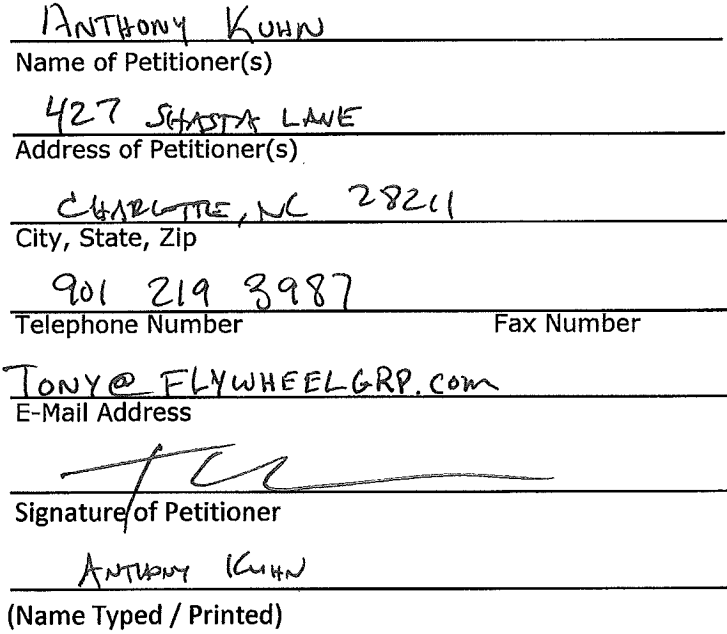 ANTHONY KUHN
Name of Petitioner(s)
427 SHASTA LANE
Address of Petitioner(s)
CHARLOTTE, NC 28211
City, State, Zip
901 219 3987
Telephone Number Fax Number
TONY@FLYWHEELGRP.COM
E-Mail Address
Signature of Petitioner
ANTHONY KUHN
(Name Typed / Printed)